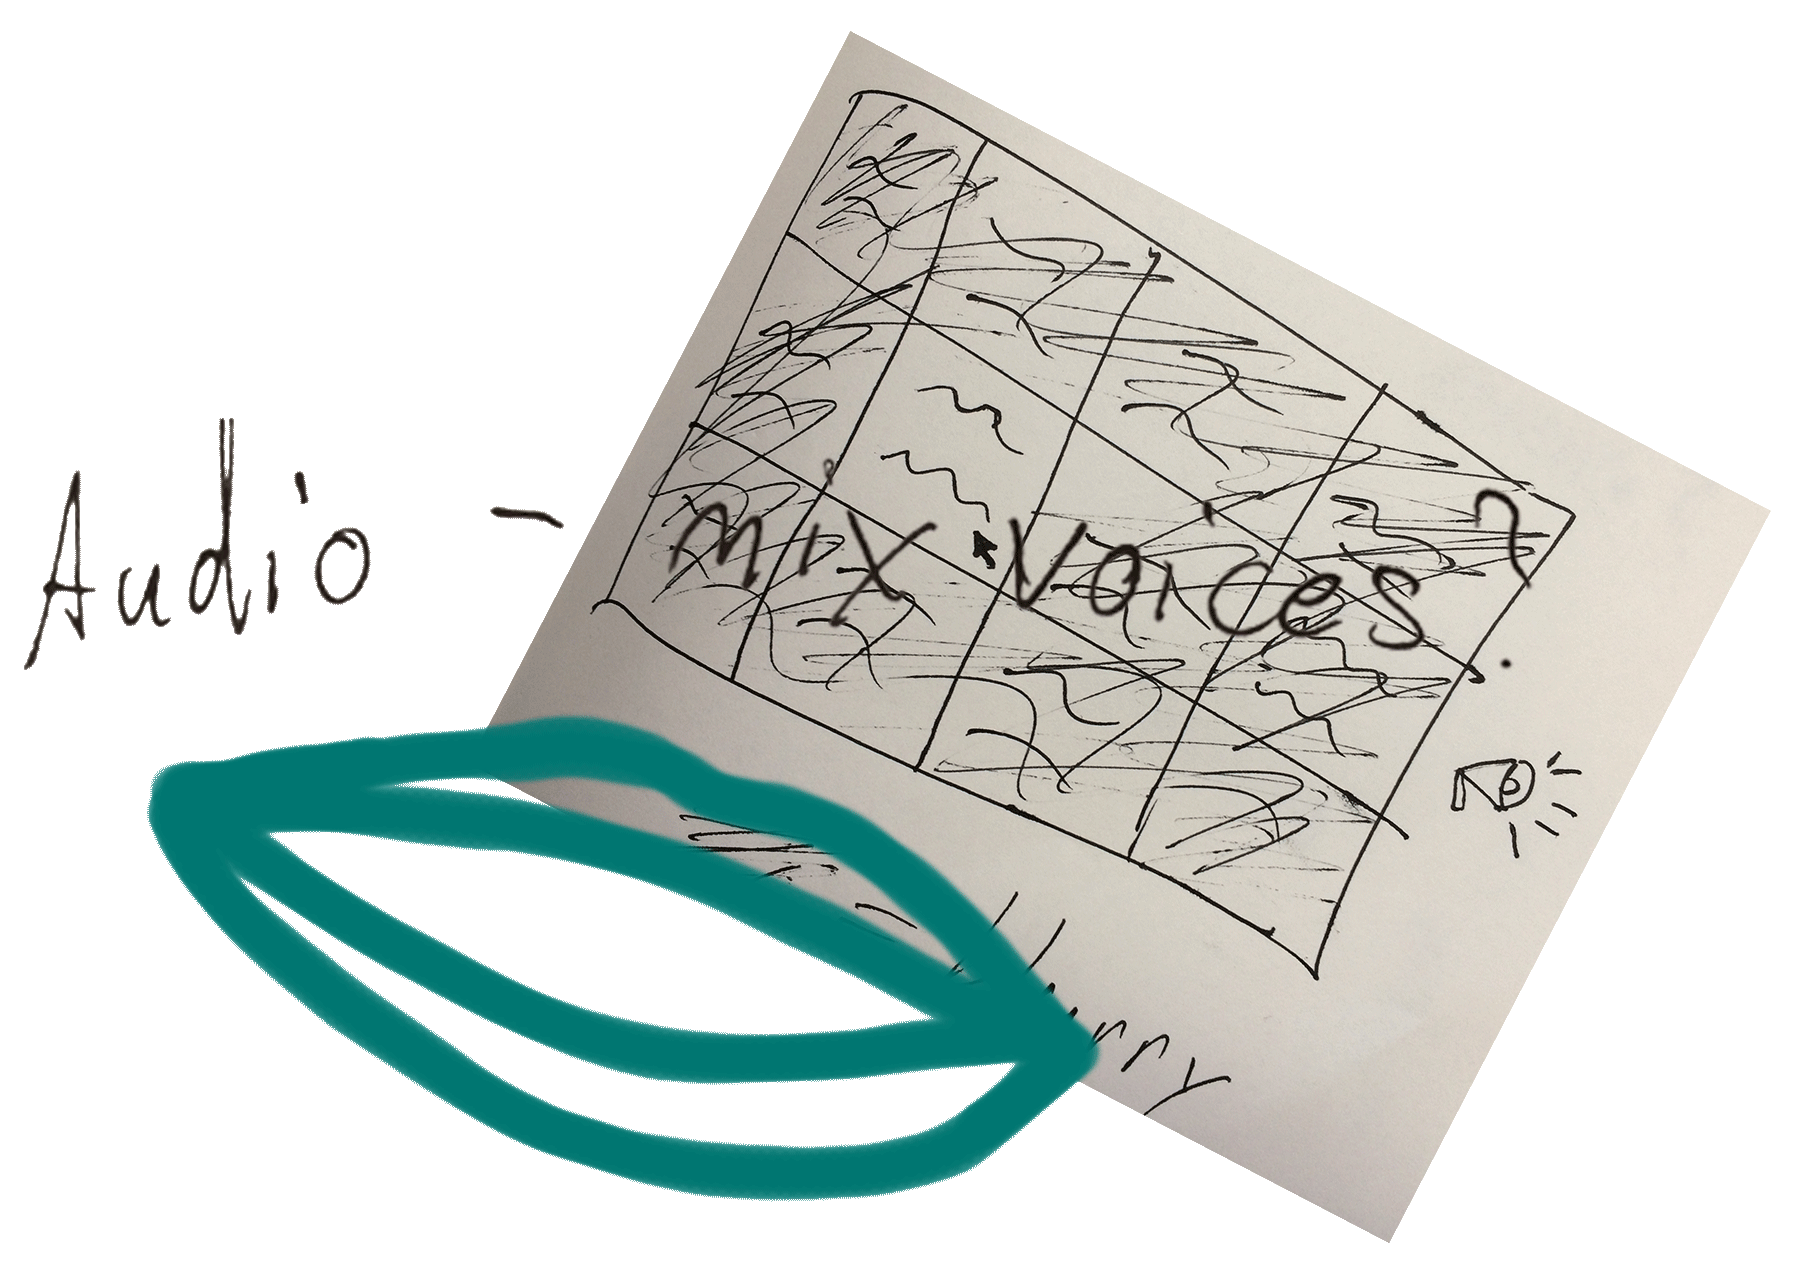 Audio - mix voices?
- blurry